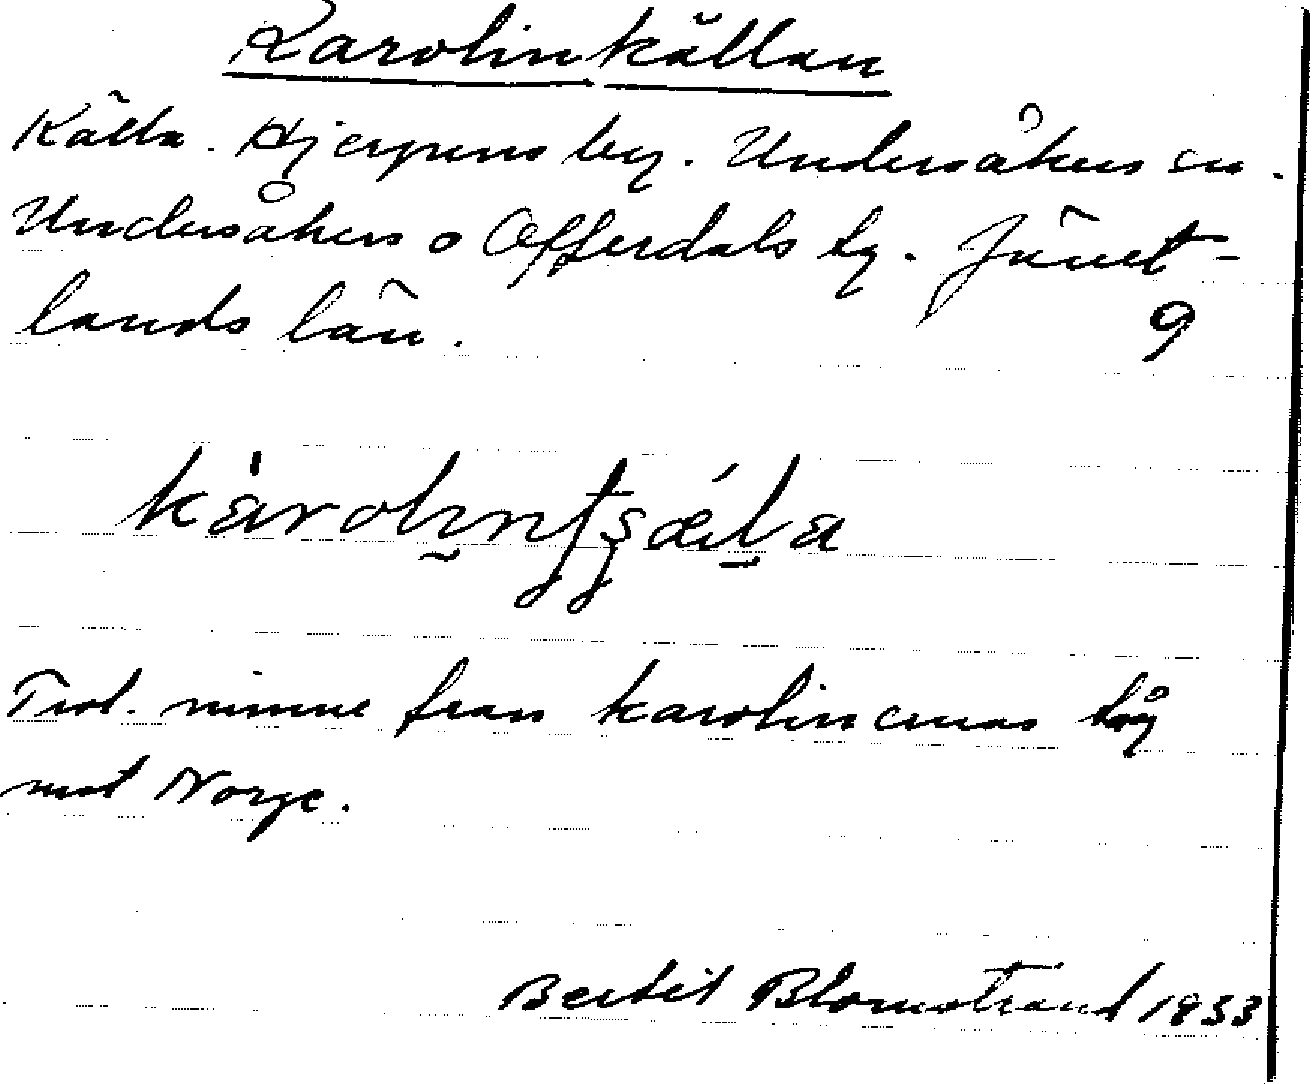 Karolinkällan
Källa. Hjerpens by. Undersåkers sn.
Undersåkers o Offerdals tg. Jämt-
lands län.
9
Trol. minne från karolinernas tåg
mot Norge.
Bertil Blomstrand 1933